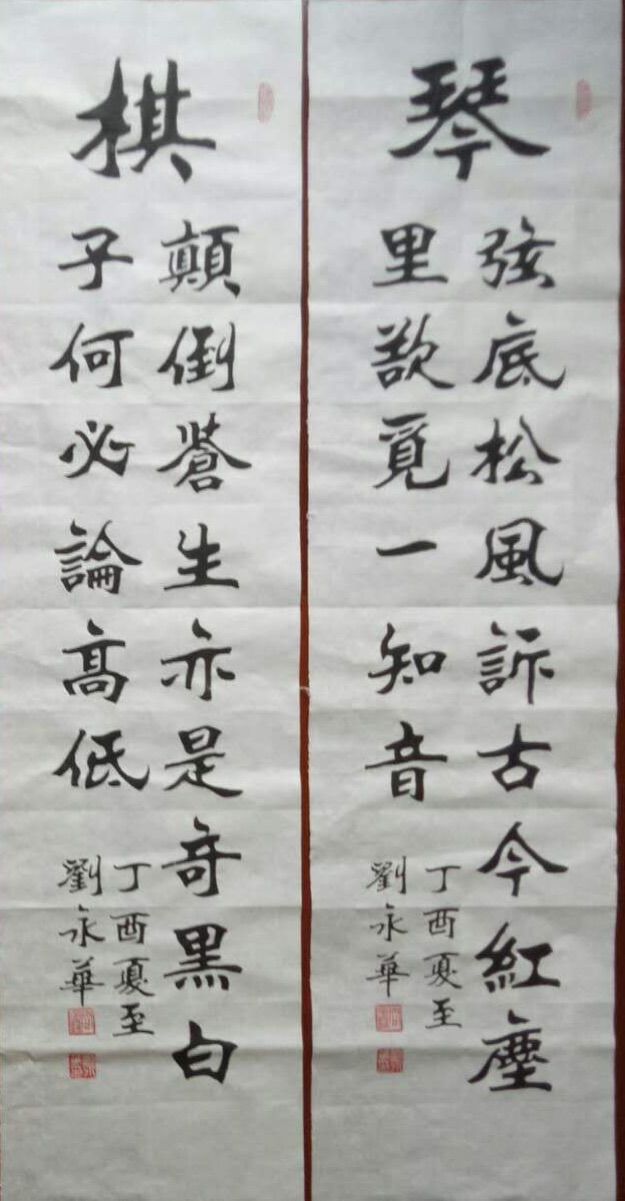 琴
弦底松風訴古今紅塵
里欲覓一知音
丁酉夏至
劉永華
棋
顛倒蒼生亦是奇黑白
子何必論高低
丁酉夏至
劉永華